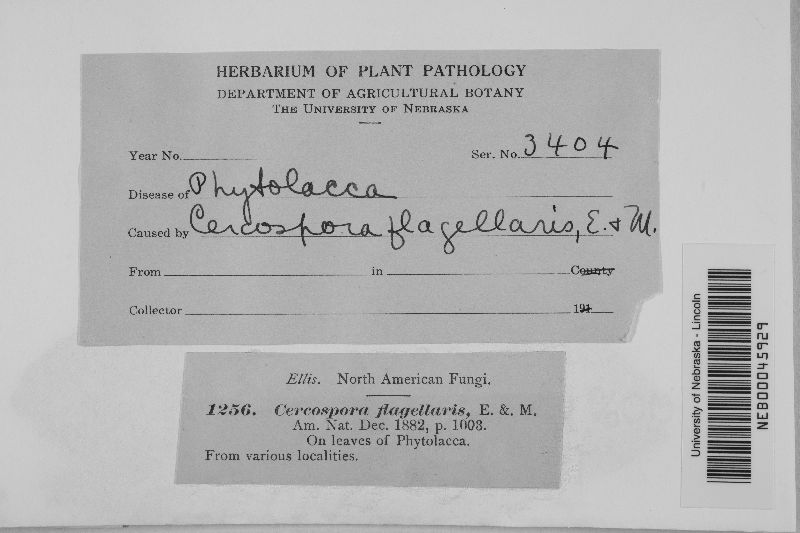 HERBARIUM OF PLANT PATHOLOGY
DEPARTMENT OF AGRICULTURAL BOTANY
THE UNIVERSITY OF NEBRASKA
Year No. Ser. No. 3404
Disease of Phytolacca
Caused by Cercospora flagellaris, E. & M.
From in County
Collector 191
Ellis. North American Fungi.
1256. Cercospora flagellaris, E. & M.
Am. Nat. Dec. 1882, p. 1003.
On leaves of Phytolacca.
From various localities.
University of Nebraska - Lincoln
NEB00045929